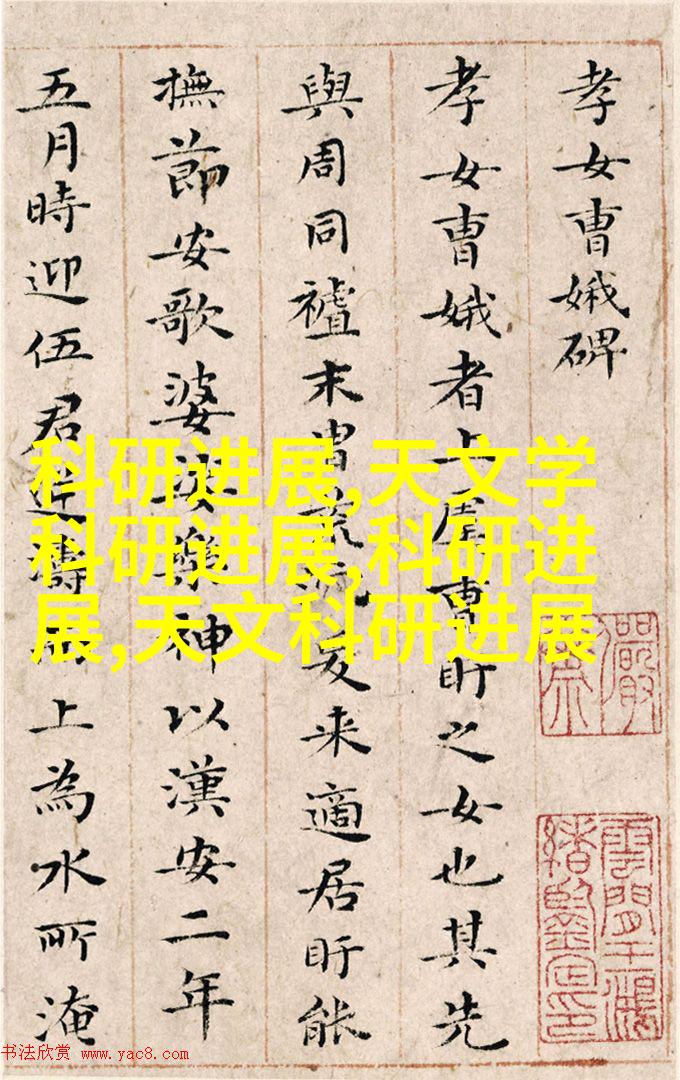 孝女曹娥碑
孝女曹娥者上虞曹盱之女也其先
與周同禧末胄荒沉爰来適居盱能
撫節安歌婆娑樂神以漢安二年
五月時迎伍君逆濤而上為水所淹
科研进展,天文学
科研进展,科研进
展,天文科研进展
书法欣赏 www.yac8.com